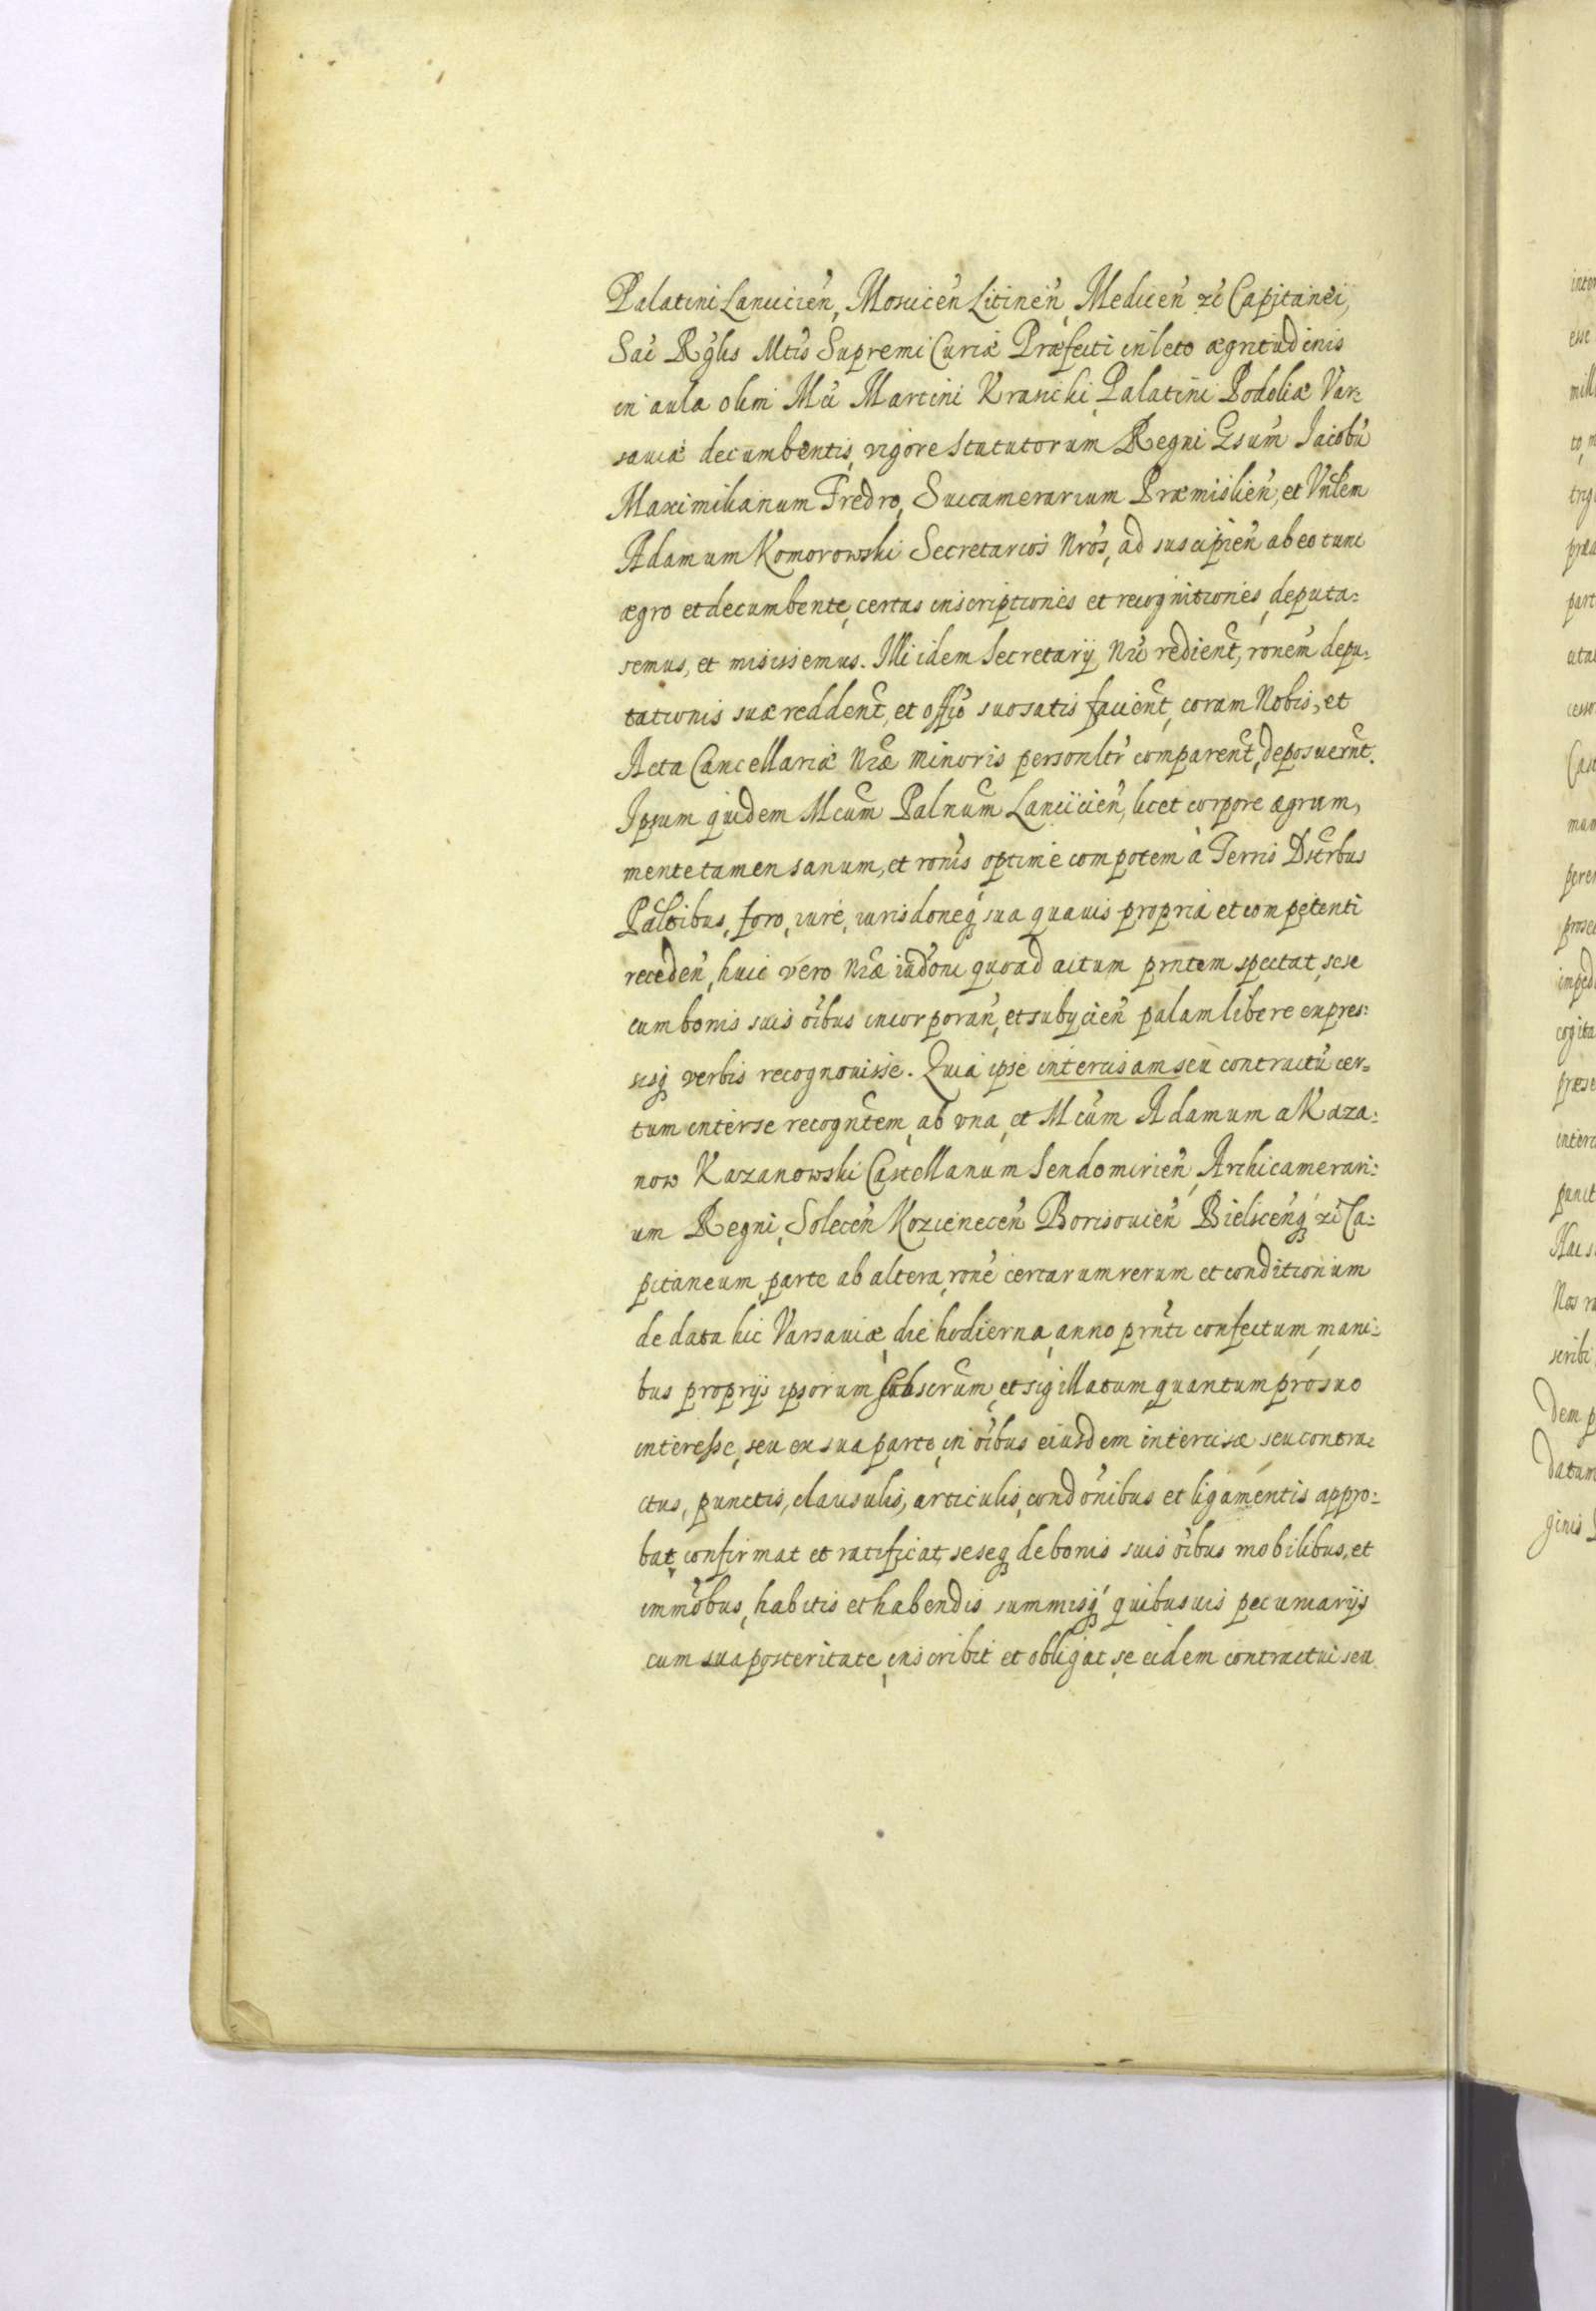 Palatini Lancicień, Mosticeń Litineń, Mediceń zc Capitanei,
Sac Rglis Mtis Supremi Curiæ Præfecti in lecto ægritudinis
in aula olim Mci Martini Krasicki Palatini Podoliæ Var-
saviæ decumbentis, vigore Statutorum Regni Gsum Jacobū
Maximilianum Fredro, Succamerarium Præmislień, et Vrblem
Adamum Komorowski Secretarios Nros, ad suscipień ab eo tunc
ægro et decumbente, certas inscriptiones et recognitiones, deputa-
semus, et misissemus. Illi idem Secretarij Nri redient, ronem depu-
tationis suæ reddent, et offo suo satis facient, coram Nobis, et
Acta Cancellariæ Nræ Minoris personltr comparent, deposuernt.
Ipsum quidem Mcum Palnum Lancicień, licet corpore ægrum,
mente tamen sanum, et ronis optime compotem à Terris Dstrbus
Paltibus, foro, iure, iurisdoneq sua quavis propria et competenti
receden, huic vero Nræ iudoni quoad actum prntem spectat, sese
cum bonis suis oibus incorporan, et subijcien palam libere expres-
sisq verbis recognovisse. Quia ipse intercisam seu contractū cer-
tum inter se recogntem, ab una, et Mcum Adamum a Kaza-
now Kazanowski Castellanum Sendomirień, Archicamerari-
um Regni, Soleceń Kozieneceń Borisovień Bielscenq zc Ca-
pitaneum, parte ab altera, rone certarum rerum et conditionum
de data hic Varsaviæ, die hodierna, anno prnti confectum, mani-
bus proprijs ipsorum subscrum, et sigillatum quantum pro suo
interesse, seu ex sua parte, in oibus eiusdem intercisæ seu contra-
ctus, punctis, clausulis, articulis, condonibus et ligamentis appro-
bat, confirmat et ratificat, seseq de bonis suis oibus mobilibus, et
immobus, habitis et habendis summisq quibusvis pecuniarijs
cum sua posteritate, inscribit et obligat, se eidem contractui seu